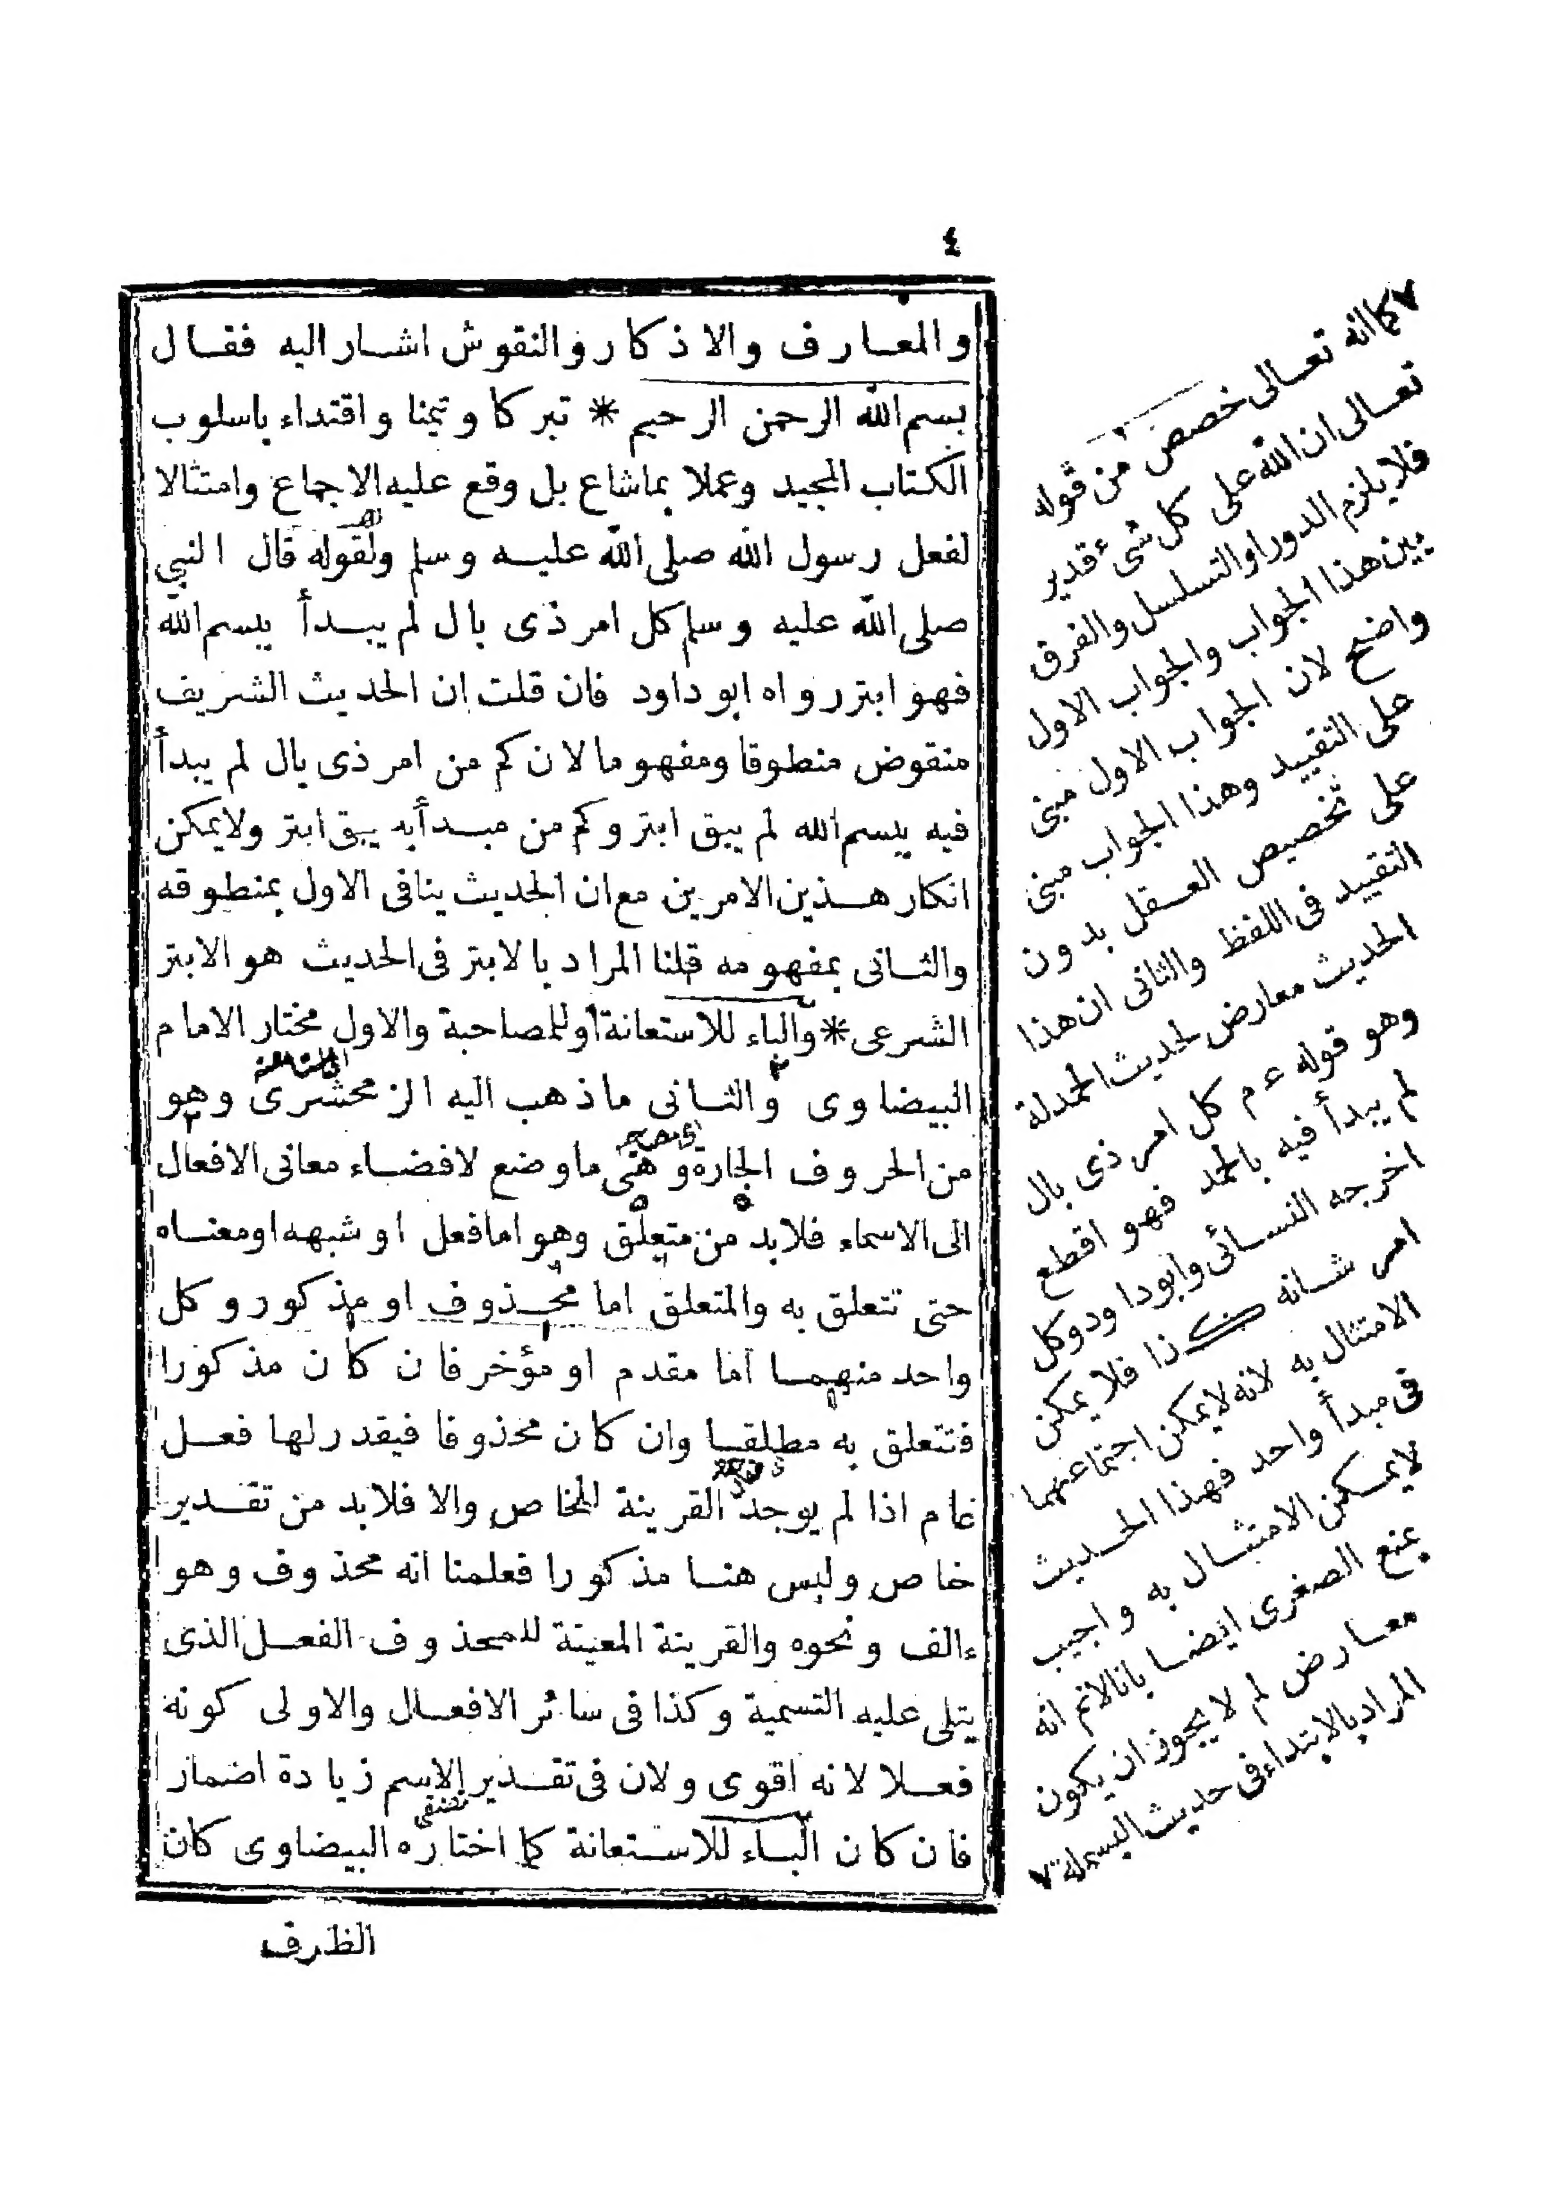 ٤
والمعارف والاذكار والنقوش اشار اليه فقال
بسم الله الرحمن الرحيم * تبركا وتيمنا واقتداء باسلوب
الكتاب المجيد وعملا بماشاع بل وقع عليه الاجماع وامتثالا
لفعل رسول الله صلى الله عليه وسلم ولقوله قال النبي
صلى الله عليه وسلم كل امر ذى بال لم يبدأ ببسم الله
فهو ابتر رواه ابو داود فان قلت ان الحديث الشريف
منقوض منطوقا ومفهوما لان كم من امر ذى بال لم يبدأ
فيه ببسم الله لم يبق ابتر وكم من مبدأ به يبق ابتر ولا يمكن
انكار هذين الامرين مع ان الحديث ينافى الاول بمنطوقه
والثانى بمفهومه قلنا المراد بالابتر فى الحديث هو الابتر
الشرعى * والباء للاستعانة او للمصاحبة والاول مختار الامام
البيضاوى والثانى ماذهب اليه الزمخشرى وهو
من الحروف الجارة وهى ماوضع لافضاء معانى الافعال
الى الاسماء فلابد من متعلق وهو اما فعل او شبهه او معناه
حتى تتعلق به والمتعلق اما محذوف او مذكور وكل
واحد منهما اما مقدم او مؤخر فان كان مذكورا
فتتعلق به مطلقا وان كان محذوفا فيقدر لها فعل
عام اذا لم يوجد القرينة للخاص والا فلابد من تقدير
خاص وليس هنا مذكورا فعلمنا انه محذوف وهو
ءالف ونحوه والقرينة المعينة للمحذوف الفعل الذى
يتلى عليه التسمية وكذا فى سائر الافعال والاولى كونه
فعلا لانه اقوى ولان فى تقدير الاسم زيادة اضمار
فان كان الباء للاستعانة كما اختاره البيضاوى كان
الظرف
٧ كما انه تعالى خصص من قوله
تعالى ان الله على كل شىء قدير
فلا يلزم الدور او التسلسل والفرق
بين هذا الجواب والجواب الاول
واضح لان الجواب الاول مبنى
على التقييد وهذا الجواب مبنى
على تخصيص العقل بدون
التقييد فى اللفظ والثانى ان هذا
الحديث معارض لحديث الحمدلة
وهو قوله ءم كل امر ذى بال
لم يبدأ فيه بالحمد فهو اقطع
اخرجه النسائى وابوداود وكل
امر شانه كذا فلا يمكن
الامتثال به لانه لا يمكن اجتماعهما
فى مبدأ واحد فهذا الحديث
لا يمكن الامتثال به واجيب
بمنع الصغرى ايضا بانا لانم انه
معارض لم لا يجوز ان يكون
المراد بالابتداء فى حديث البسملة ٧